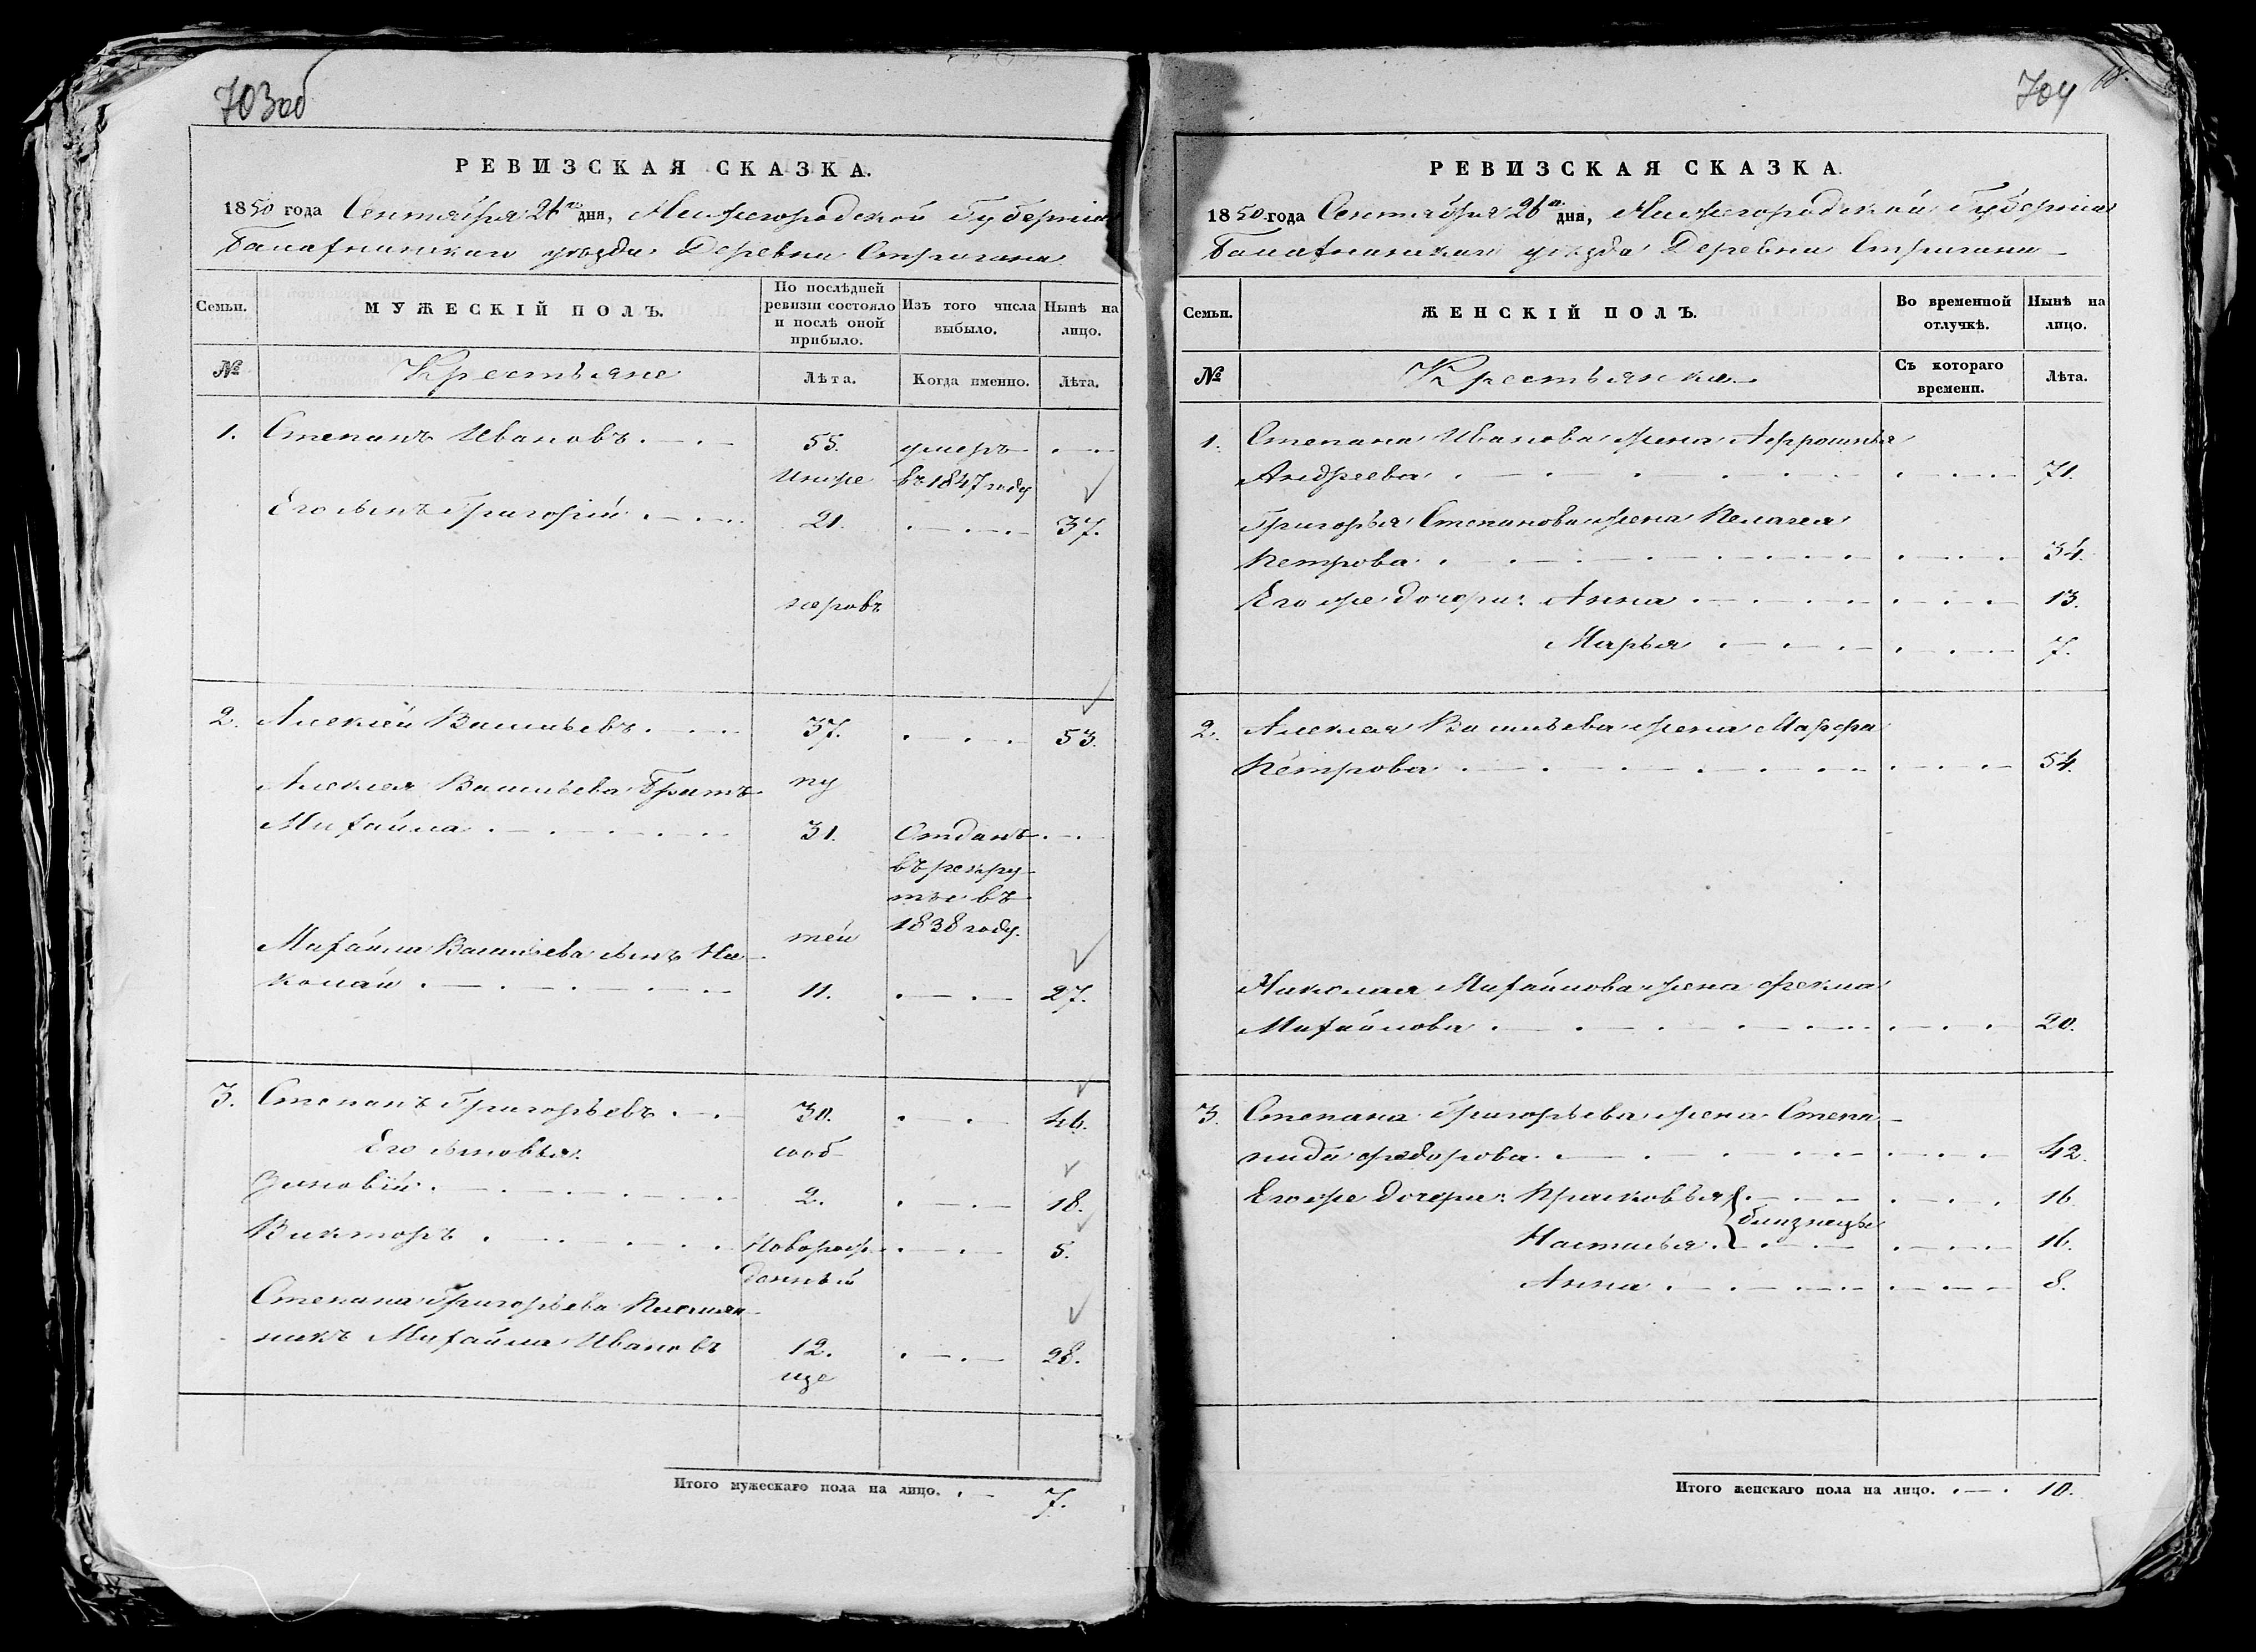 703об
РЕВИЗСКАЯ СКАЗКА.
1850 года Сентября 26го дня, Нижегородской Губерніи
Балахнинскаго уѣзда Деревни Стригина
Семьи.
МУЖЕСКІЙ ПОЛЪ.
По послѣдней ревизіи состояло и послѣ оной прибыло.
Изъ того числа выбыло.
Нынѣ на лицо.
№
Крестьяне
Лѣта.
Когда именно.
Лѣта.
1. Степанъ Ивановъ . — . — 55. умеръ . — . —
въ 1847 году
Его сынъ Григорій . — . — 21. . — . — . — 37.
неровъ
2. Алексѣй Васильевъ . — . — 37. . — . — . — 53.
Алексея Васильева Братъ ну
Михайла . — . — . — 31. Отданъ . — .
въ рекру-
ты въ
1838 году.
Михайлы Васильева сынъ Ни- тей
колай . — . — . — 11. . — . — 27.
3. Степанъ Григорьевъ . — . 30. . — . — 46.
Его сыновья: сооб
Зиновій . — . — . — 2. . — . — 18.
Викторъ . — . — . — Новорож- . — . — 5.
денный
Степана Григорьева Племян-
никъ Михайла Ивановъ 12. . — . — 28.
ще
Итого мужескаго пола на лицо. . — 7.
704
РЕВИЗСКАЯ СКАЗКА.
1850 года Сентября 26го дня, Нижегородской Губерніи
Балахнинскаго уѣзда Деревни Стригина —
Семьи.
ЖЕНСКІЙ ПОЛЪ.
Во временной отлучкѣ.
Нынѣ на лицо.
№
Крестьянки
Съ котораго времени.
Лѣта.
1. Степана Иванова жена Афросинья
Андреева . — . — . — 71.
Григорья Степанова жена Пелагея
Петрова . — . — . — 34.
Его же дочери: Анна . — . — . — 13.
Марья . — . — . — 7.
2. Алексея Васильева жена Марфа
Петрова . — . — . — 54.
Николая Михайлова жена Фекла
Михайлова . — . — . — 20.
3. Степана Григорьева жена Степа-
нида Федорова . — . — . — 42.
Его же дочери: Прасковья . — . — . — 16.
близнецы
Настасья . — . — . — 16.
Анна . — . — . — 8.
Итого женскаго пола на лицо. . — . 10.